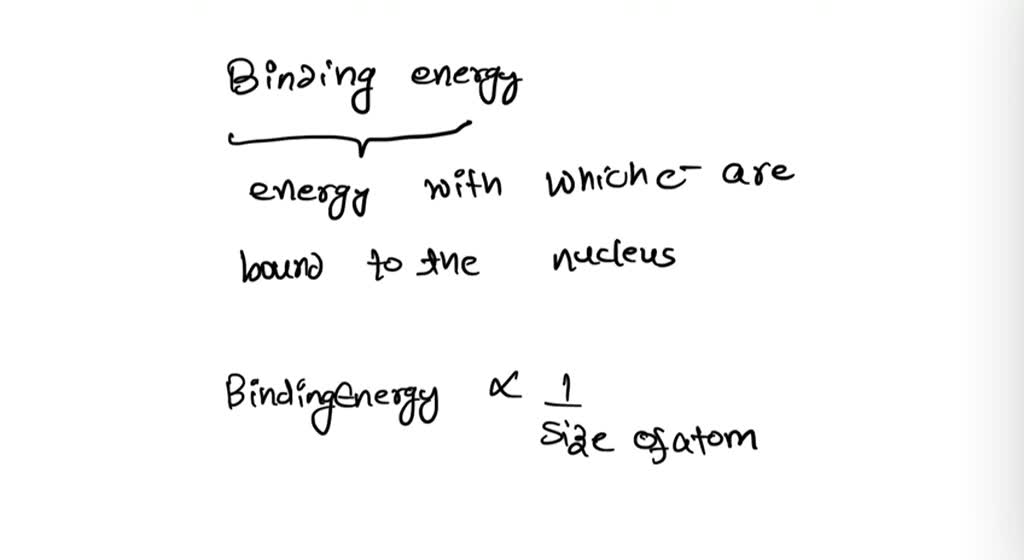 Binding energy
energy with which e- are
bound to the nucleus
Binding Energy ∝ 1
size of atom